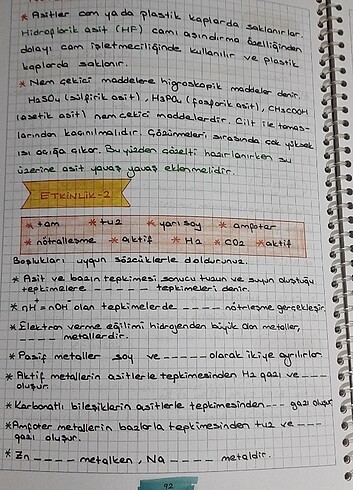 * Asitler cam ya da plastik kaplarda saklanırlar.
Hidroflorik asit (HF) camı aşındırma özelliğinden
dolayı cam işletmeciliğinde kullanılır ve plastik
kaplarda saklanır.
* Nem çekici maddelere higroskopik maddeler denir.
H2SO4 (sülfirik asit), H3PO4 (fosforik asit), CH3COOH
(asetik asit) nem çekici maddelerdir. Cilt ile temas-
larından kaçınılmalıdır. Çözünmeleri sırasında çok yüksek
ısı açığa çıkar. Bu yüzden çözelti hazırlanırken su
üzerine asit yavaş yavaş eklenmelidir.
ETKİNLİK-2
* tam * tuz * yarı soy * amfoter
* nötralleşme * aktif * H2 * CO2 * aktif
Boşlukları uygun sözcüklerle doldurunuz.
* Asit ve bazın tepkimesi sonucu tuzun ve suyun oluştuğu
tepkimelere _ _ _ _ _ tepkimeleri denir.
* nH+ = nOH- olan tepkimelerde _ _ _ _ _ nötrleşme gerçekleşir.
* Elektron verme eğilimi hidrojenden büyük olan metaller,
_ _ _ _ _ metallerdir.
* Pasif metaller soy ve _ _ _ _ _ olarak ikiye ayrılırlar.
* Aktif metallerin asitlerle tepkimesinden H2 gazı ve _ _ _ _
oluşur.
* Karbonatlı bileşiklerin asitlerle tepkimesinden _ _ _ gazı oluşur.
* Amfoter metallerin bazlarla tepkimesinden tuz ve _ _ _ _
gazı oluşur.
* Zn _ _ _ _ metalken, Na _ _ _ _ _ metaldir.
92